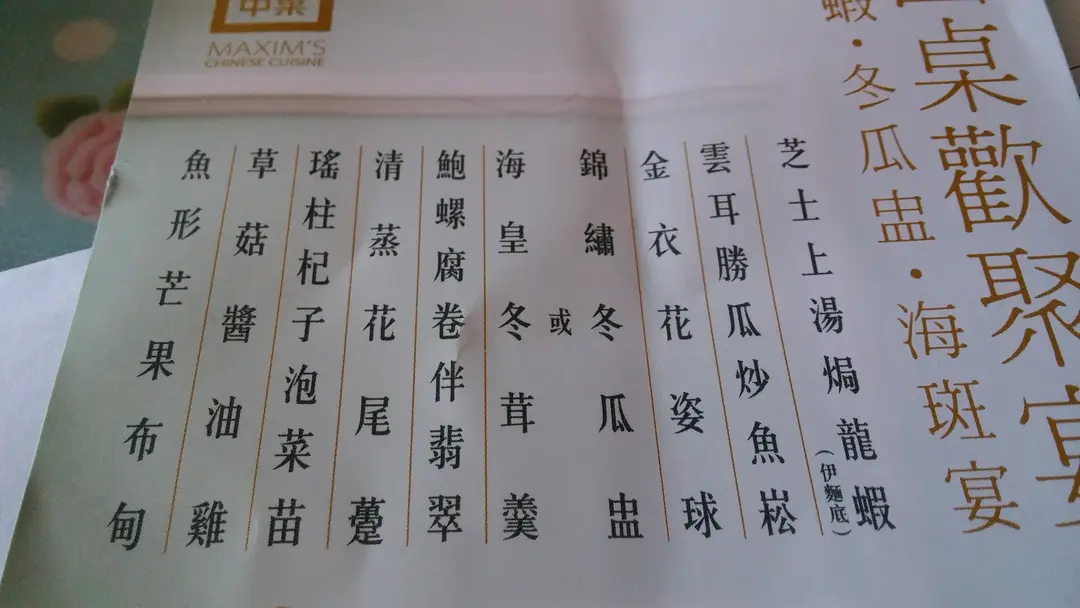 桌歡聚宴
蝦·冬瓜盅·海斑宴
中菜
MAXIM'S
CHINESE CUISINE
芝士上湯焗龍蝦
(伊麵底)
雲耳勝瓜炒魚崧
金衣花姿球
錦繡冬瓜盅
或
海皇冬茸羹
鮑螺腐卷伴翡翠
清蒸花尾躉
瑤柱杞子泡菜苗
草菇醬油雞
魚形芒果布甸